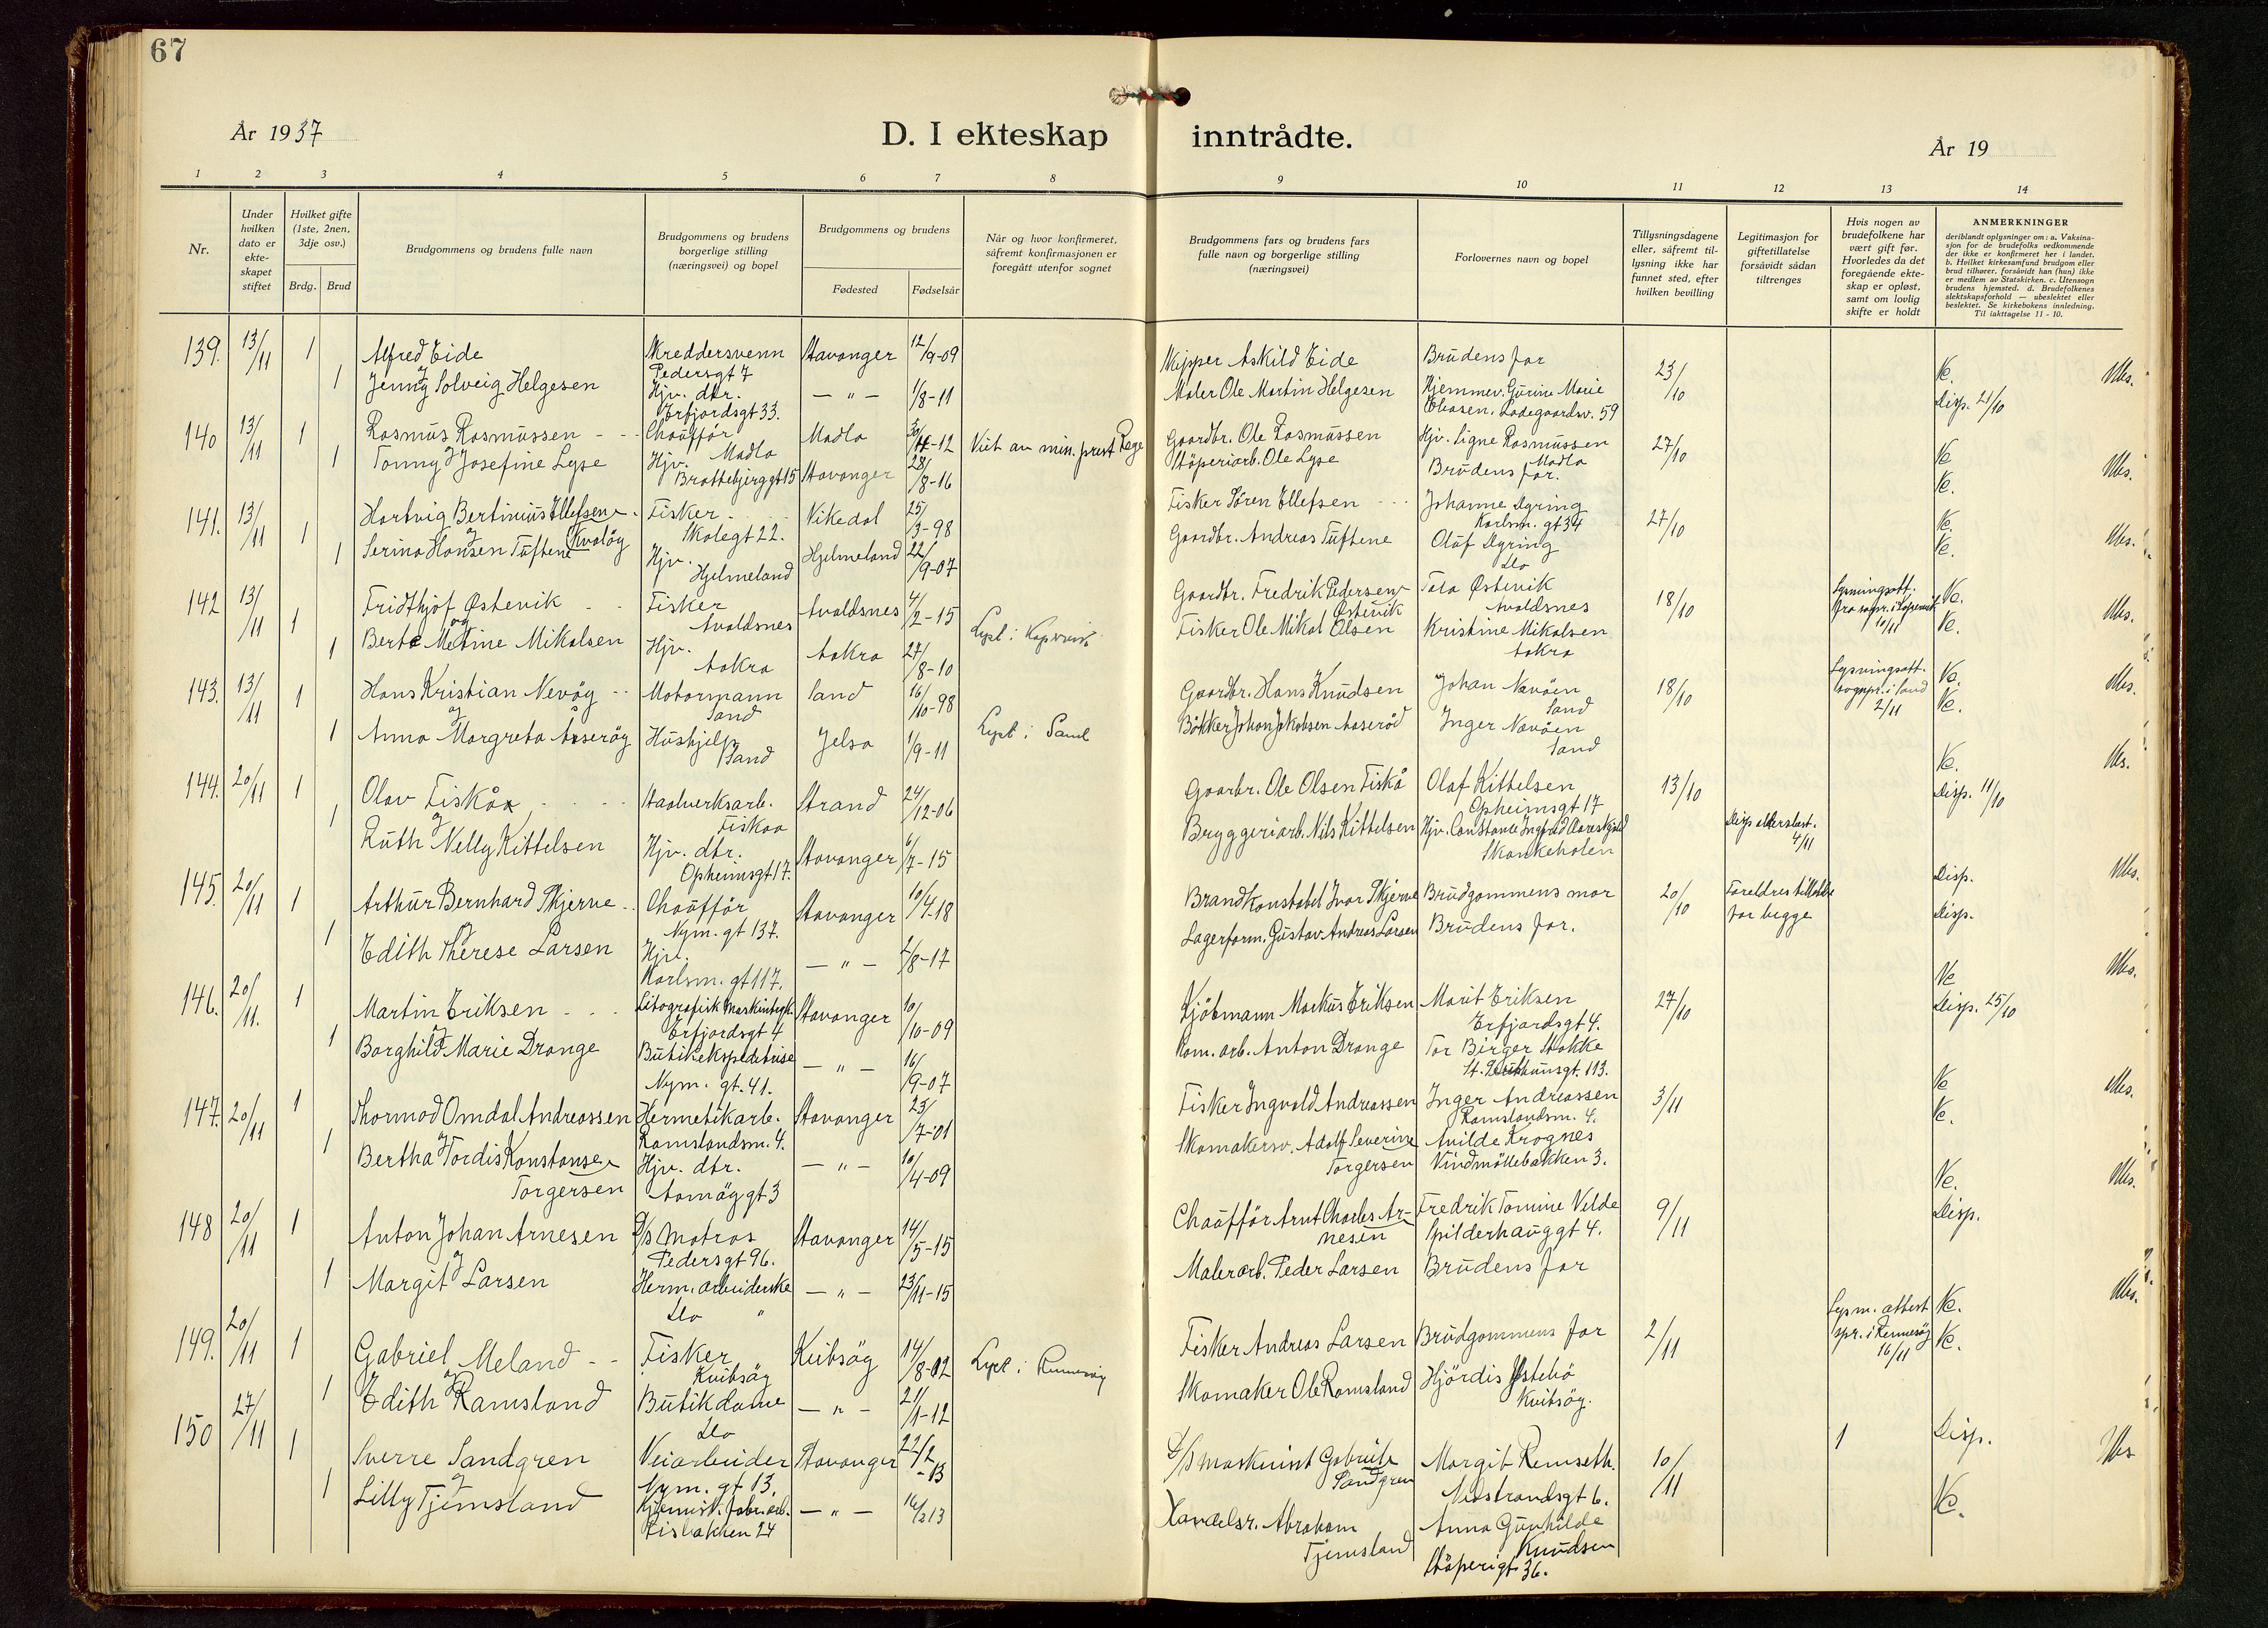 67
År 1937
D. I ekteskap inntrådte.
År 19
1 2 3 4 5 6 7 8 9 10 11 12 13 14
Nr.
Under hvilken dato er ekte-skapet stiftet
Hvilket gifte (1ste, 2nen, 3dje osv.)
Brdg. Brud
Brudgommens og brudens fulle navn
Brudgommens og brudens borgerlige stilling (næringsvei) og bopel
Brudgommens og brudens
Fødested Fødselsår
Når og hvor konfirmeret, såfremt konfirmasjonen er foregått utenfor sognet
Brudgommens fars og brudens fars fulle navn og borgerlige stilling (næringsvei)
Forlovernes navn og bopel
Tillysningsdagene eller, såfremt til-lysning ikke har funnet sted, efter hvilken bevilling
Legitimasjon for giftetillatelse forsåvidt sådan tiltrenges
Hvis nogen av brudefolkene har vært gift før. Hvorledes da det foregående ekte-skap er opløst, samt om lovlig skifte er holdt
ANMERKNINGER
deriblandt oplysninger om: a. Vaksina-sjon for de brudefolks vedkommende der ikke er konfirmeret her i landet. b. Hvilket kirkesamfund brudgom eller brud tilhører, forsåvidt han (hun) ikke er medlem av Statskirken. c. Utensogn brudens hjemsted. d. Brudefolkenes slektskapsforhold — ubeslektet eller beslektet. Se kirkebokens innledning. Til iakttagelse 11 - 10.
139. 13/11 1 Alfred Eide Skreddersvenn Pedersgt 7 Stavanger 12/9-09 Skipper Askild Eide Brudens far 23/10 Ve. Ubs.
og
1 Jenny Solveig Helgesen Hjv. dtr. Erfjordsgt 33. — " — 1/8-11 Maler Ole Martin Helgesen Hjemmev. Gurine Marie Ladegaardsv. 59 Disp. 21/10
140 13/11 1 Rasmus Rasmussen Chauffør Madla Madla 12 Viet av min. prest Gaardbr. Ole Rasmussen Hjv. Signe Rasmussen Madla 27/10 Ve Ubs.
og
1 Tonny Josefine Lyse Hjv. Stavanger 28/8-16 Støperiarb. Ole Lyse Brudens far. Ve.
141. 13/11 1 Hartvig Bertinius Ellefsen Kvaløy Fisker Skolegt 22. Vikedal 25/3-98 Fisker Søren Ellefsen Johanne Karlsm. gt 34 27/10 Ve. Ubs.
og
1 Serina Hansen Tuftene Hjv. Hjelmeland Hjelmeland 22/9-07 Gaardbr. Andreas Tuftene Olaf Do Ve.
142 13/11 1 Fridthjof Østevik Fisker Avaldsnes Avaldsnes 4/2-15 Lyst i Gaardbr. Fredrik Pedersen Østevik Tala Østevik Avaldsnes 18/10 Lysningsatt. 10/11 Ve. Ubs.
og
1 Berte Metine Mikalsen Hjv. Aakra Aakra 27/8-10 Fisker Ole Mikal Olsen Kristine Mikalsen Aakra Ve.
143. 13/11 1 Hans Kristian Nevøy Motormann Sand Sand 16/10-98 Lyst i Sand Gaardbr. Hans Knudsen Johan Nævøen Sand 18/10 Lysningsatt. sognpr. i Sand 2/11 Ve. Ubs.
og
1 Anna Margreta Åserøy Hushjelp Sand Jelsa 1/9-11 Bøkker Johan Jakobsen Aaserød Inger Nævøen Sand Ve.
144. 20/11 1 Olav Fiskå Staalverksarb. Fiskaa Strand 24/12-06 Gaarbr. Ole Olsen Fiskå Olaf Kittelsen Opheimsgt 17 13/10 Ve. Ubs.
og
1 Ruth Nelly Kittelsen Hjv. dtr. Opheimsgt 17. Stavanger 6/7-15 Bryggeriarb. Nils Kittelsen Hjv. Constance Skankeholen 4/11 Disp. 11/10
145. 20/11 1 Arthur Bernhard Skjerve Chauffør Nym. gt 137. Stavanger 10/4-18 Brandkonstabel Ivar Skjerve Brudgommens mor 20/10 Foreldres tillatelse for begge Disp. Ubs.
og
1 Edith Therese Larsen Hjv. Karlsm. gt 117. — " — 2/8-17 Lagerform. Gustav Andreas Larsen Brudens far. Disp.
146. 20/11. 1 Martin Eriksen Litografisk Erfjordsgt 4 Stavanger 10/10-09 Kjøbmann Markus Eriksen Marit Eriksen Erfjordsgt 4. 27/10 Ve Ubs.
og
1 Borghild Marie Drange Butikekspeditrise Nym. gt. 41. — " — 16/9-07 Kom. arb. Anton Drange Tor Birger Stokke 113. Disp. 25/10
147. 20/11 1 Thormod Omdal Andreassen Hermetikarb. Ramslandsm. 4. Stavanger 23/7-01 Fisker Ingvald Andreassen Inger Andreassen Ramslandsm. 4. 3/11 Ve Ubs.
og
1 Bertha Tordis Konstanse Torgersen Hjv. dtr. gt 3 — " — 10/4-09 Skomakersv. Adolf Severine Torgersen Avilde Krognes Vindmøllebakken 3. Ve.
148 20/11 1 Anton Johan Arnesen D/s Matros Pedersgt 96. Stavanger 14/5-15 Chauffør Arnt Charles Arnesen Fredrik Tomine Velde Spilderhauggt 4. 9/11 Ve. Ubs.
og
1 Margit Larsen Herm. arbeiderske Do " — " — 23/11-15 Malerarb. Peder Larsen Brudens far Disp.
149. 20/11 1 Gabriel Meland Fisker Kvitsøy Kvitsøy 14/8-02 Lyst i Rennesøy Fisker Andreas Larsen Brudgommens far 2/11 Lysn. attest spr. i Rennesøy 16/11 Ve. Ubs.
og
1 Edith Ramsland Butikdame Do — " — 21/1-12 Skomaker Ole Ramsland Hjørdis Ystebø Kvitsøy. Ve.
150 27/11 1 Sverre Sandgren Veiarbeider Nym. gt 13. Stavanger 22/2-13 D/s maskinist Gabriel Sandgren Margit Remseth. Nedstrandsgt 6. 10/11 1 Disp. Ubs
og
1 Lilly Tjemsland Kjemisk. fabr. arb. 24 — " — 16/2 13 Handelsr. Abraham Tjemsland Anna Gunhilde Knudsen Støperigt 36. Ve.